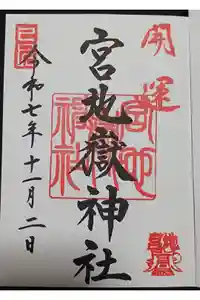 開運
宮地嶽神社
宮地嶽神社
令和七年十一月二日